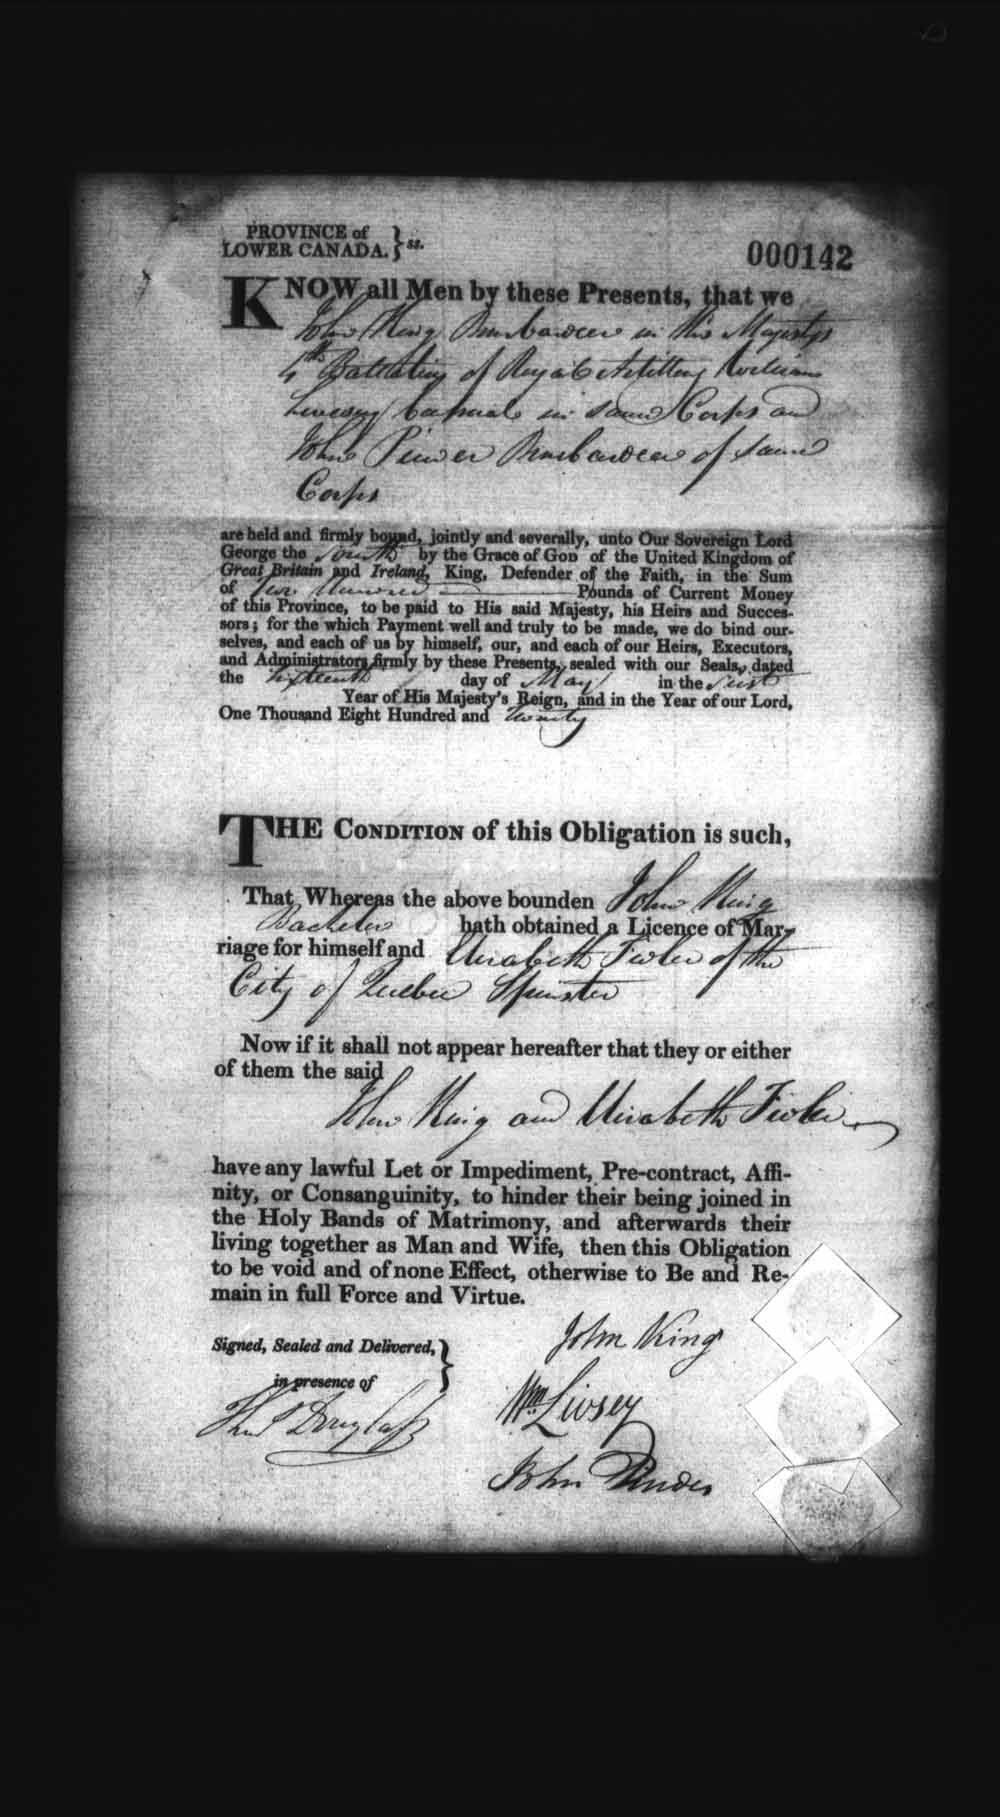 PROVINCE of
LOWER CANADA. } ss.
000142
KNOW all Men by these Presents, that we
John King Bombardier in His Majestys
4th Battalion of Royal Artillery William
Livesey Corporal in same Corps and
John Pinder Bombardier of same
Corps
are held and firmly bound, jointly and severally, unto Our Sovereign Lord
George the fourth by the Grace of GOD of the United Kingdom of
Great Britain and Ireland, King, Defender of the Faith, in the Sum
of two Hundred Pounds of Current Money
of this Province, to be paid to His said Majesty, his Heirs and Succes-
sors; for the which Payment well and truly to be made, we do bind our-
selves, and each of us by himself, our, and each of our Heirs, Executors,
and Administrators firmly by these Presents, sealed with our Seals, dated
the day of May in the first
Year of His Majesty's Reign, and in the Year of our Lord,
One Thousand Eight Hundred and twenty
THE CONDITION of this Obligation is such,
That Whereas the above bounden John King
Bachelor hath obtained a Licence of Mar-
riage for himself and Elizabeth of the
City of Quebec Spinster
Now if it shall not appear hereafter that they or either
of them the said
John King and Elizabeth
have any lawful Let or Impediment, Pre-contract, Affi-
nity, or Consanguinity, to hinder their being joined in
the Holy Bands of Matrimony, and afterwards their
living together as Man and Wife, then this Obligation
to be void and of none Effect, otherwise to Be and Re-
main in full Force and Virtue.
Signed, Sealed and Delivered, }
in presence of
John King
Wm Livsey
John Pinder
Douglass